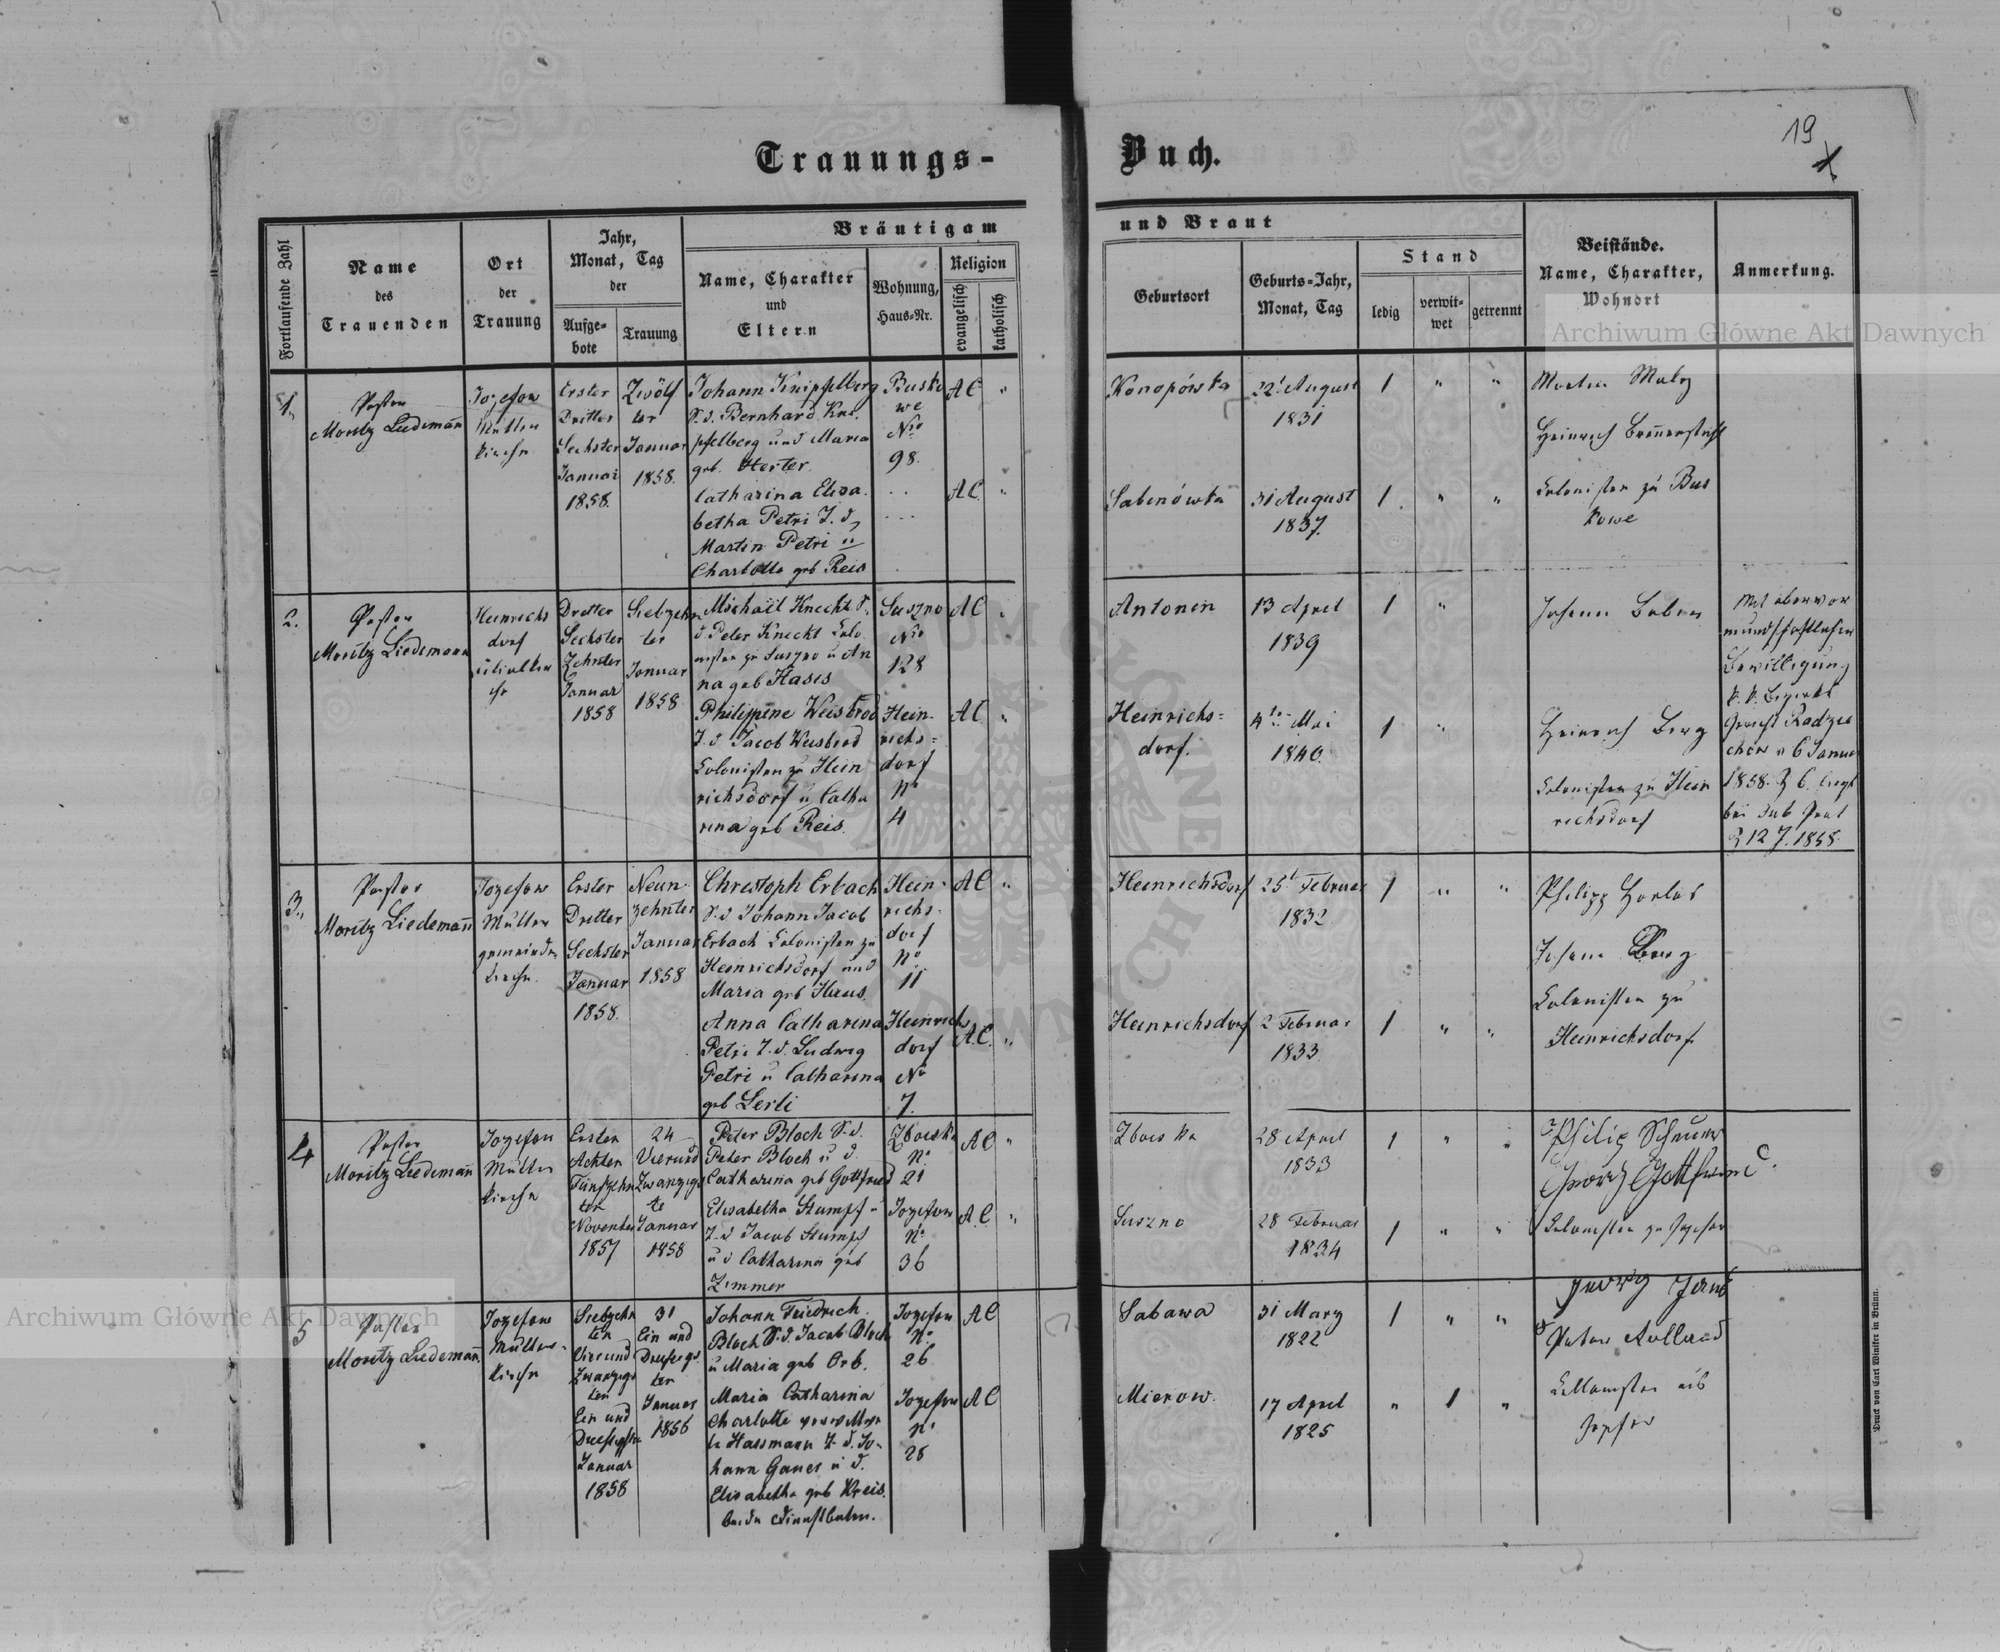 Trauungs-Buch.
19
Fortlaufende Zahl
Name
des
Trauenden
Ort
der
Trauung
Jahr,
Monat, Tag
der
Aufge-
bote
Trauung
Bräutigam und Braut
Name, Charakter
und
Eltern
Wohnung,
Haus-Nr.
Religion
evangelisch
katholisch
Geburtsort
Geburts-Jahr,
Monat, Tag
Stand
ledig
verwit-
wet
getrennt
Beistände.
Name, Charakter,
Wohnort
Anmerkung.
1.
Pastor
Moritz Liedemann
Jozefow
Mutter
kirche
Erster
Dritter
Sechster
Januar
1858.
Zwölf
ter
Januar
1858.
Johann Knipfelberg
S. d. Bernhard Kni-
pfelberg und Maria
geb. Herter.
Catharina Elisa.
betha Petri T. d.
Martin Petri u
Charlotte geb Reis
Busko
we
Nro
98.
AC
AC
Konopówka
22t August
1831
1
Sabinówka
31 August
1837.
1
Heinrich
Colonisten zu Bus
kowe
2.
Pastor
Moritz Liedemann
Heinrichs
dorf
Dritter
Sechster
Zehnter
Januar
1858
Siebzehn
ter
Januar
1858
Michael Knecht S.
d. Peter Knecht Colo
nisten zu Suszno u An
na geb Hasis
Philippine Weisbrod
T. d Jacob Weisbrod
Colonisten zu Hein
richsdorf u Catha
rina geb Reis.
Suszno
Nro
128
Hein-
richs-
dorf
No
4
AC
AC
Antonin
13 April
1839
1
Heinrichs-
dorf.
4te Mai
1840
1
Johann
Heinrich Berg
Colonisten zu Hein
richsdorf
Mit obervor
mundschaftlicher
Bewilligung
k. k. Bezirks
Gericht Radzie
chów v 6 Januar
1858. Z 6.
bei sub
Z 12 7. 1858.
3.
Pastor
Moritz Liedemann
Jozefow
Mutter
gemeinde
kirche.
Erster
Dritter
Sechster
Januar
1858.
Neun-
zehnter
Januar
1858
Christoph Erbach
S. d Johann Jacob
Erbach Colonisten zu
Heinrichsdorf und
Maria geb
Anna Catharina
Petri T. d. Ludwig
Petri u Catharina
geb Leili
Hein-
richs-
dorf
No
11
Heinrich
dorf
No
7.
AC
AC.
Heinrichsdorf
25t Februar
1832
1
Heinrichsdorf
2 Februar
1833.
1
Philipp
Johann Berg
Colonisten zu
Heinrichsdorf
4
Pastor
Moritz Liedemann
Jozefow
Mutter
kirche
Erster
Achter
Fünfzehn
ter
November
1857
24
Vierund
Zwanzigs
te
Januar
1858
Peter Bloch S. d.
Peter Bloch u. d.
Catharina geb Gottfried
Elisabetha Stumpf
T. d Jacob Stumpf
u d Catharina geb
Zimmer
Zboiska
No
21
Jozefow
No
36
AC
A.C.
Zboiska
28 April
1833
1
Suszno
28 Februar
1834
1
Philip
Georg
Colonisten zu Jozefow
5
Pastor
Moritz Liedemann
Jozefow
Mutter-
kirche
Siebzehn
ter
Vierund
Zwanzigs
ter
Ein und
Januar
1858
31
Ein und
ter
Januar
Johann Friedrich
Bloch S. d. Jacob Bloch
u Maria geb Orb.
Maria Catharina
Charlotte
Hassmann T. d. Jo-
hann Gaues u. d.
Elisabetha geb Kreis.
Jozefow
No
26
Jozefow
No
28
AC
AC
Sabawa
31 März
1822
1
Mierow.
17 April
1825
1
Georg
Peter
Druck von Carl Winiker in Brünn.
Archiwum Główne Akt Dawnych
Archiwum Główne Akt Dawnych